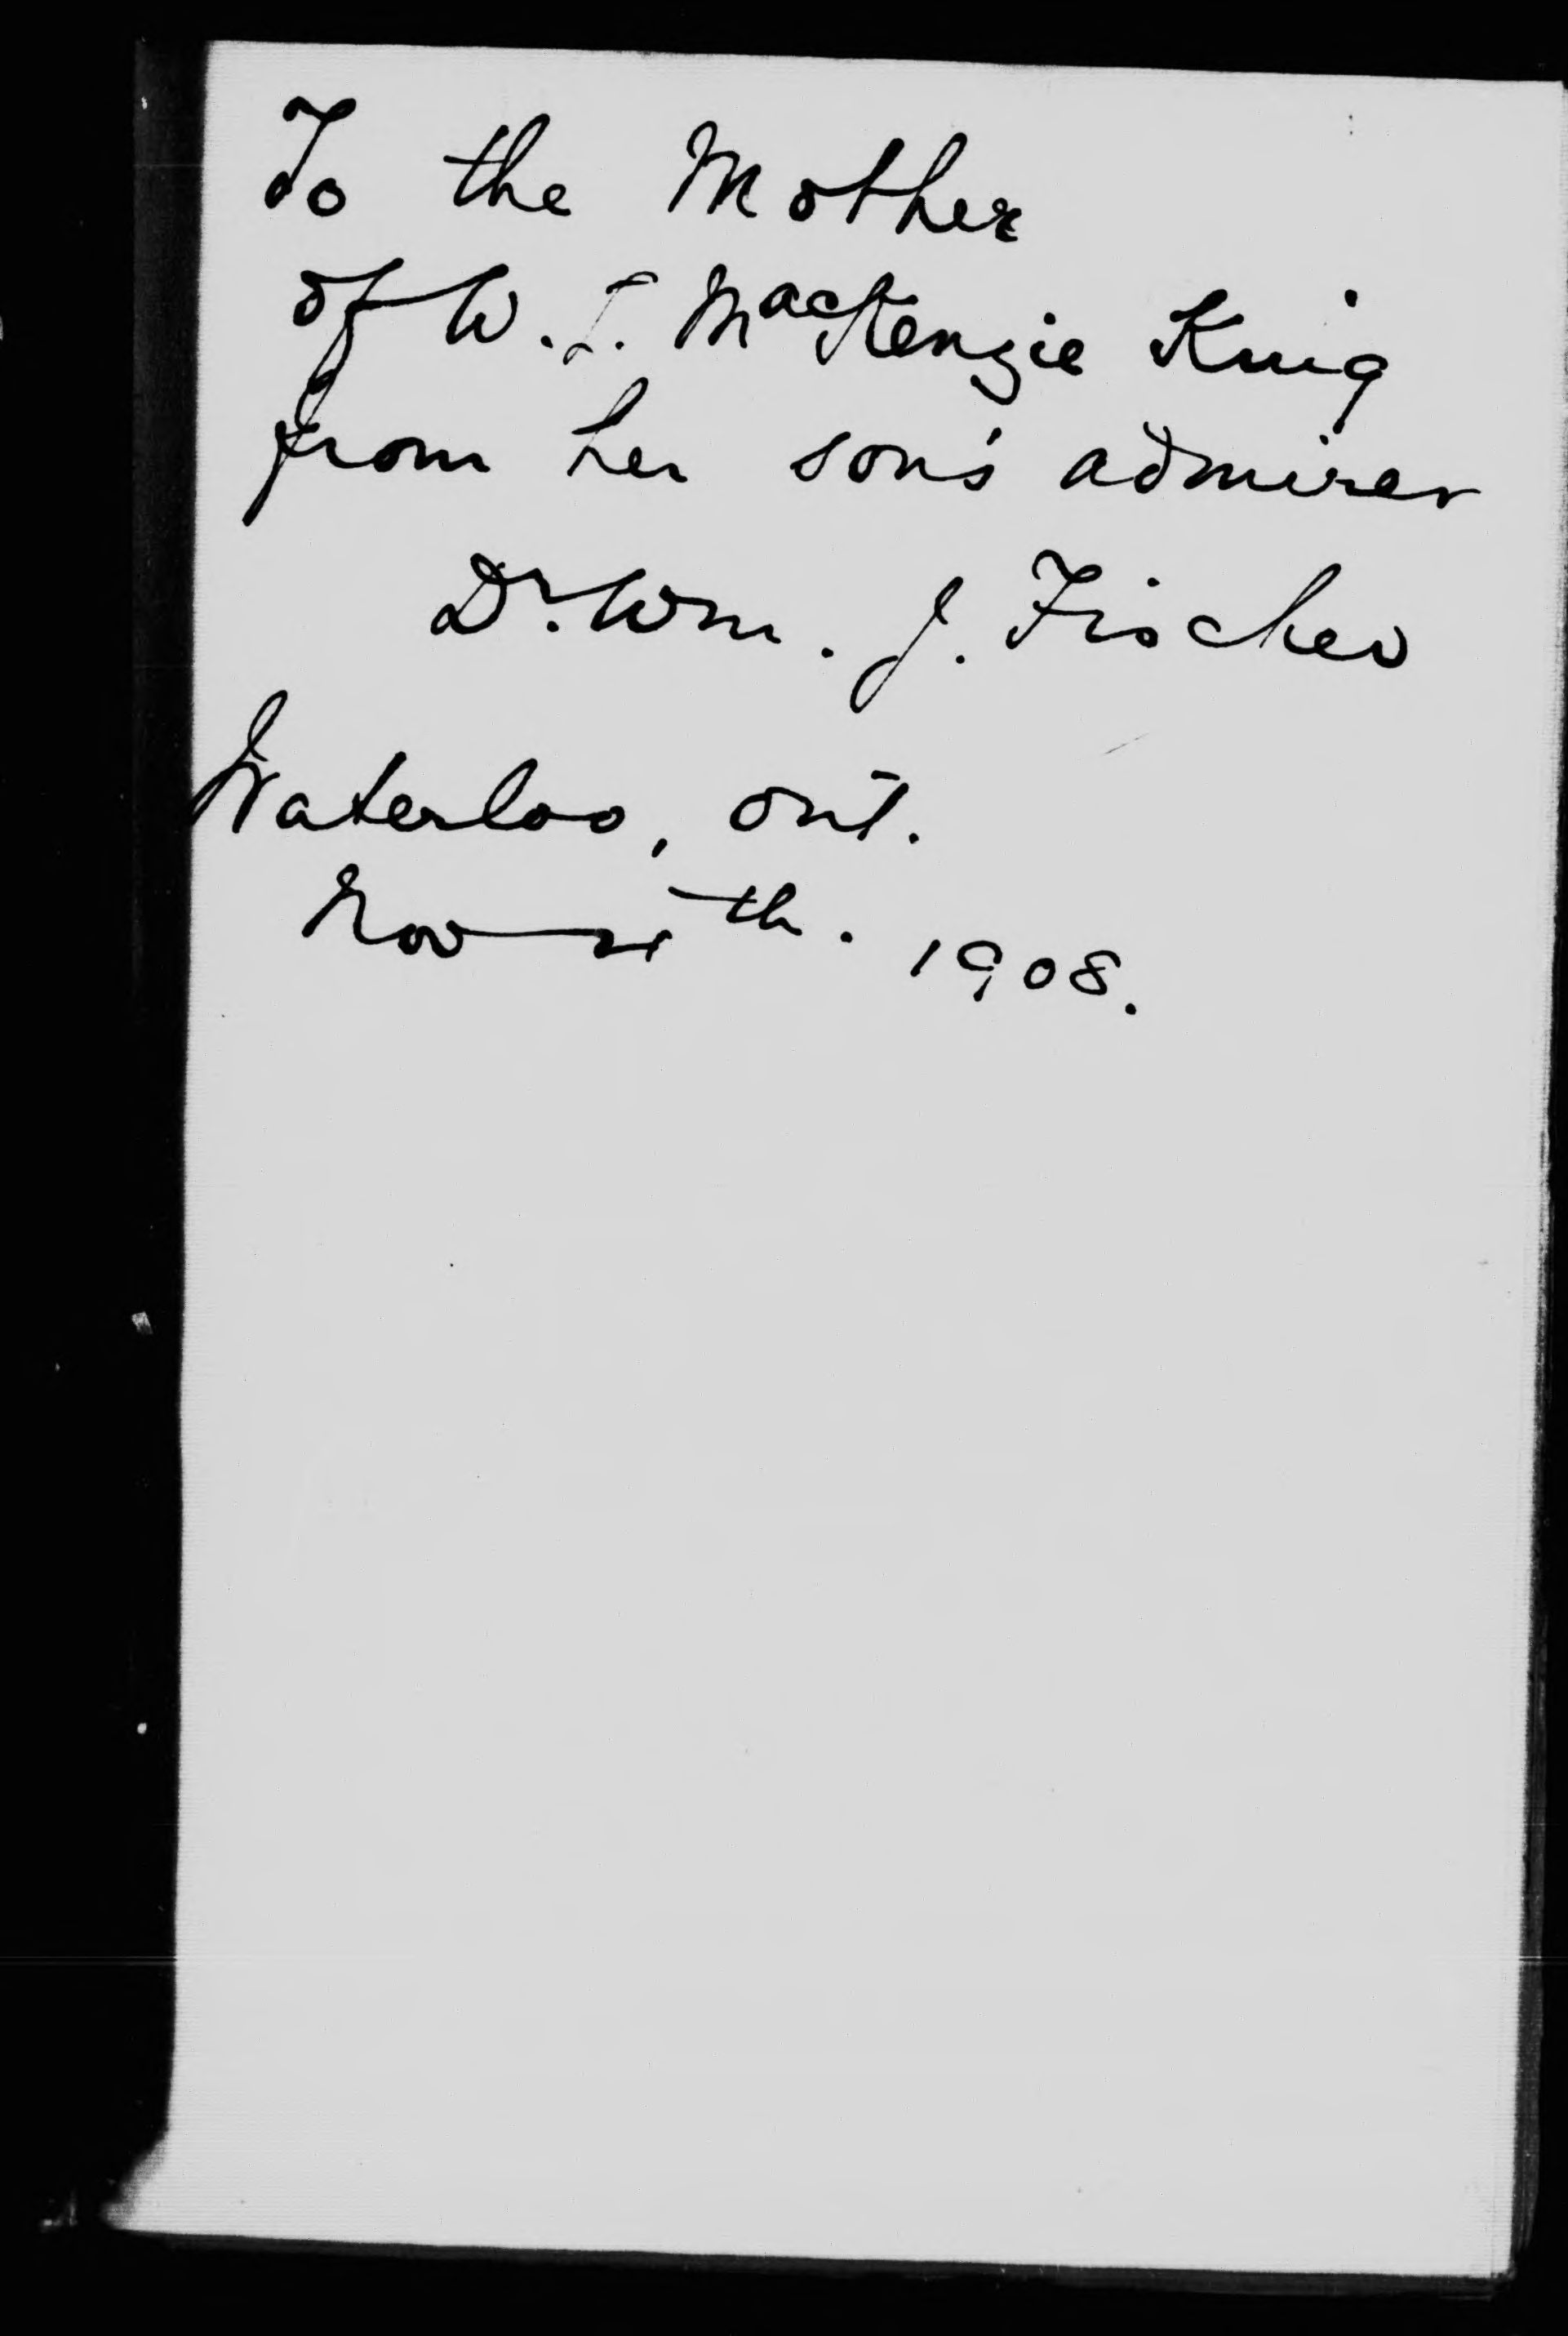 To the Mother
of W. L. MacKenzie King
from her son's admirer
Dr. Wm. J. Fischer
Waterloo, Ont.
Nov th. 1908.